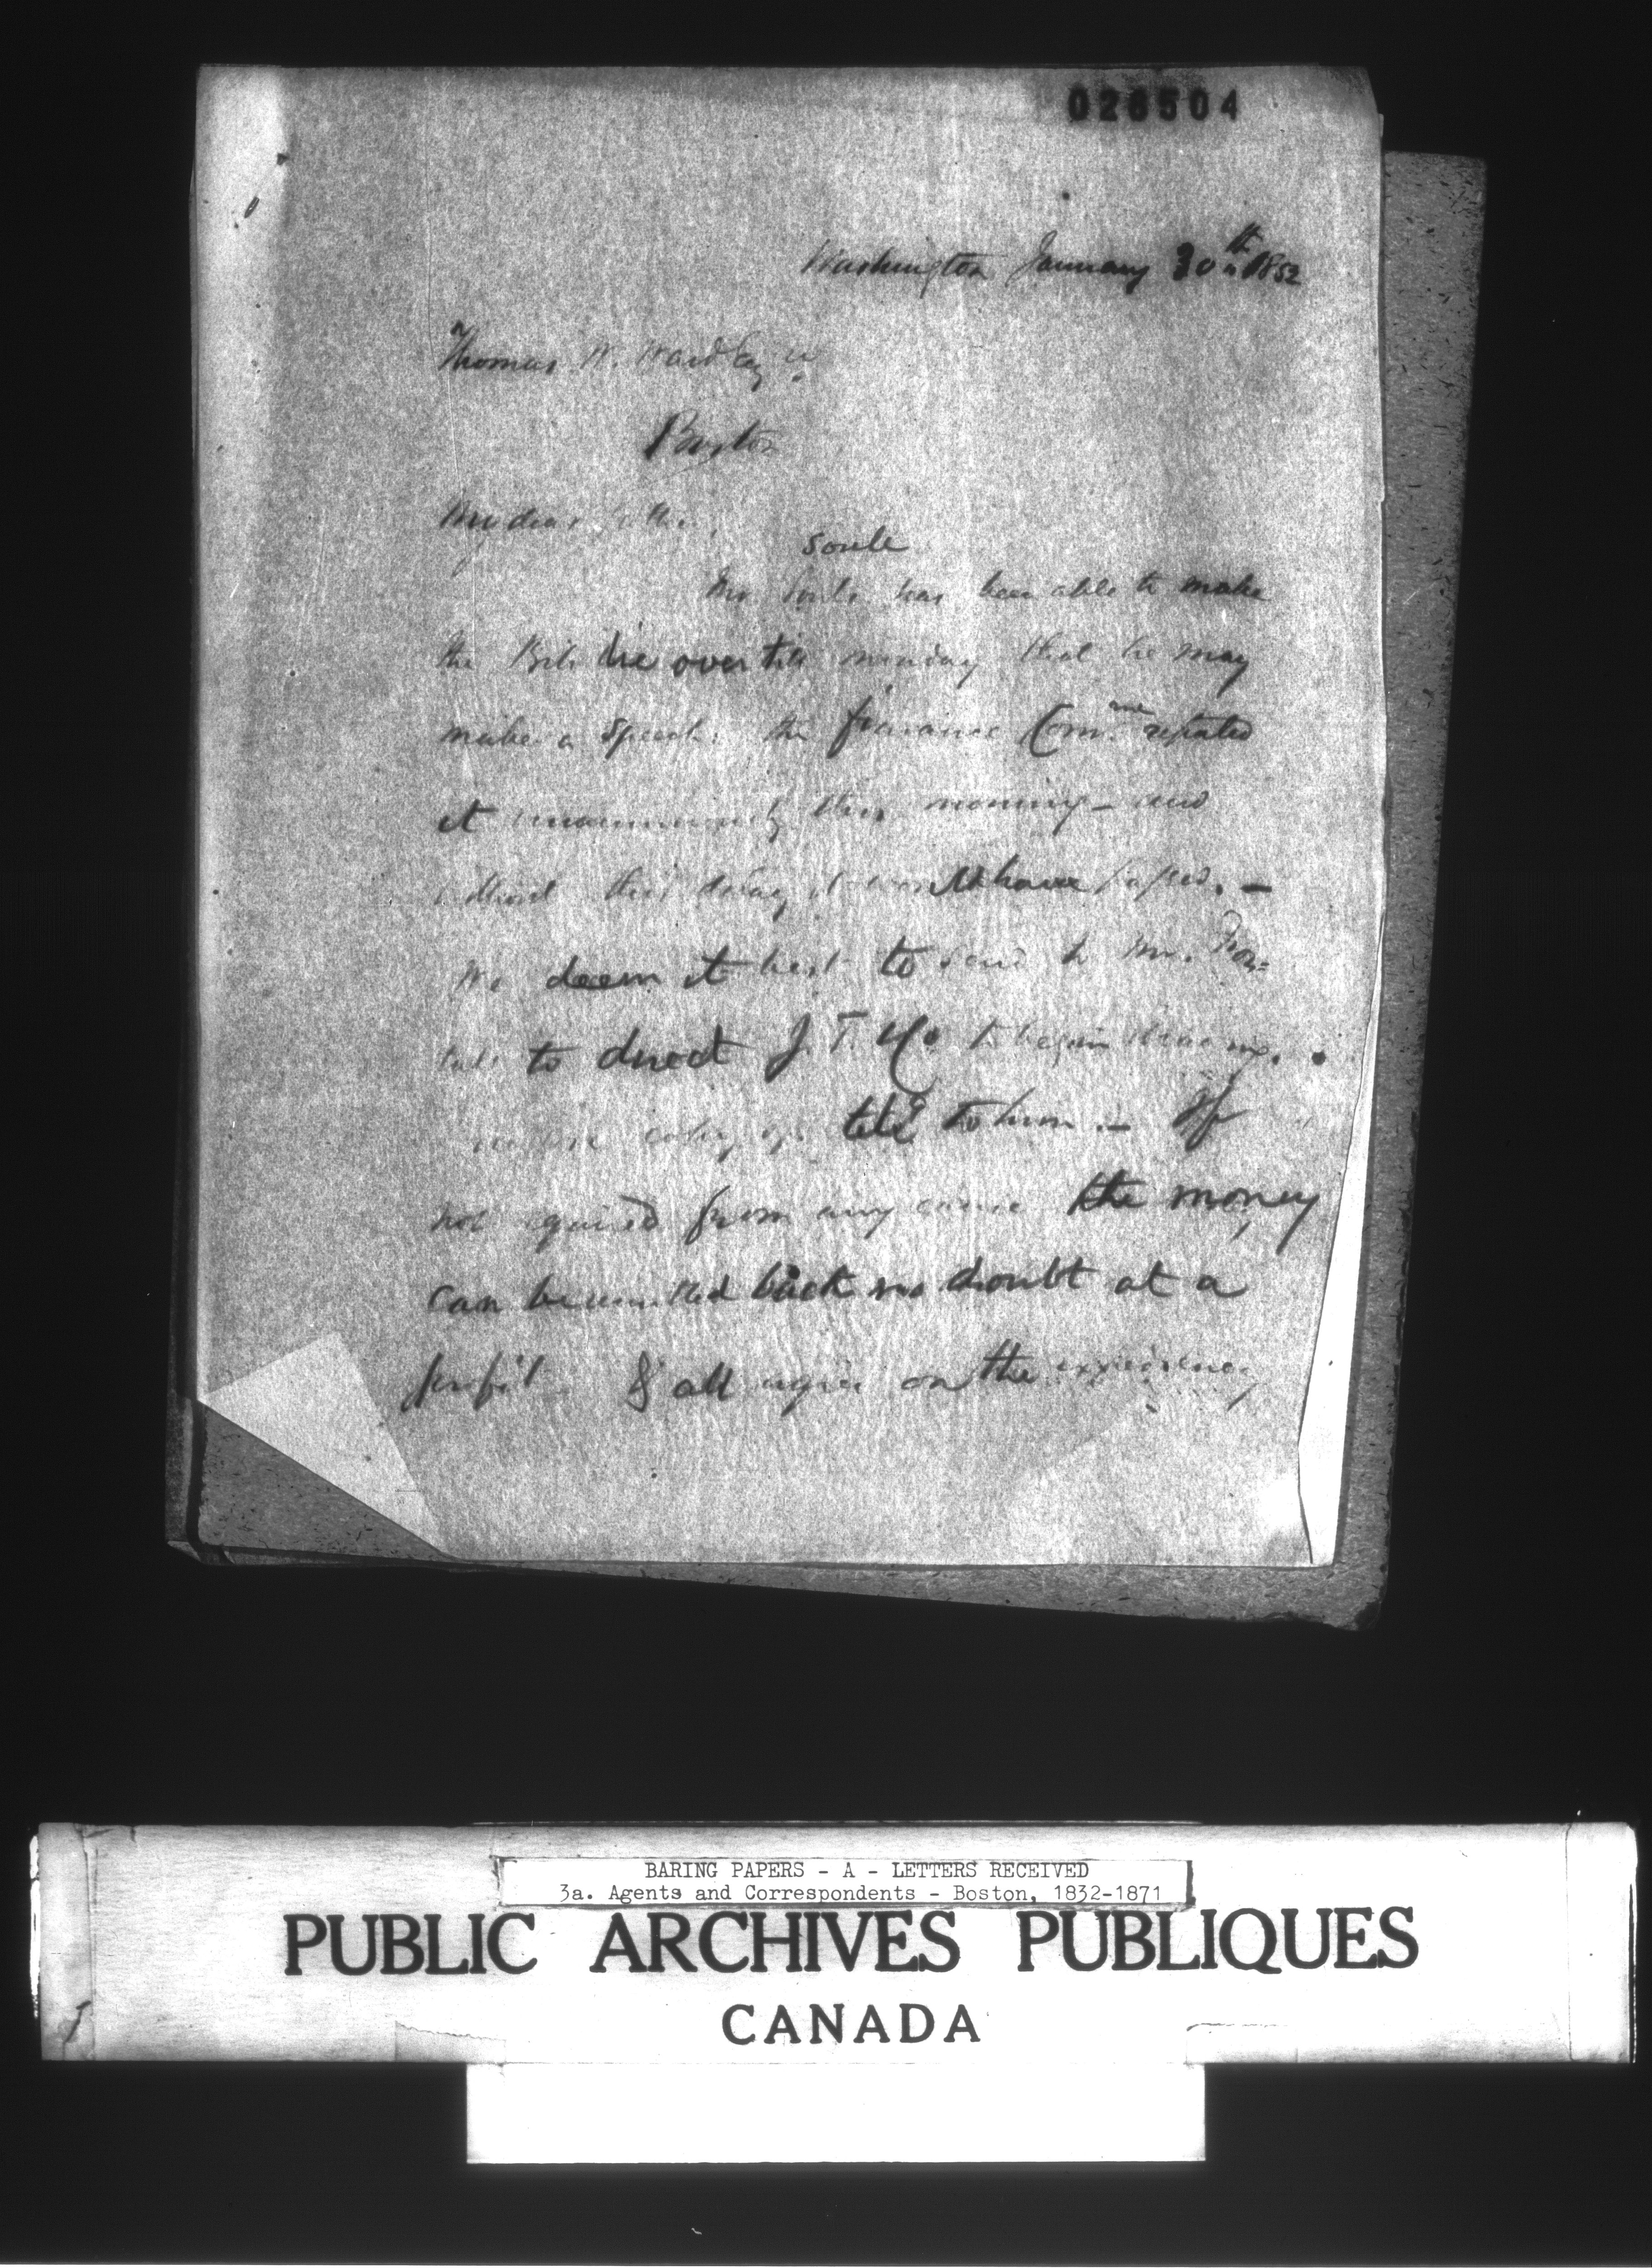 026504
Washington January 30th 1852
Thomas W. Ward Esqre
Boston
My dear
Soule
Mr. Soule has been able to make
the Bill lie over till monday that he may
make a speech. the finance Com. reported
it unanimously this morning - and
without this delay it would have passed. -
We deem it best to send to Mr.
to direct J. T. & Co to begin drawing.
copy of to him. - If
not from any cause the money
can be remitted back no doubt at a
profit & all agree on the expediency
BARING PAPERS - A - LETTERS RECEIVED
3a. Agents and Correspondents - Boston, 1832-1871
PUBLIC ARCHIVES PUBLIQUES
CANADA